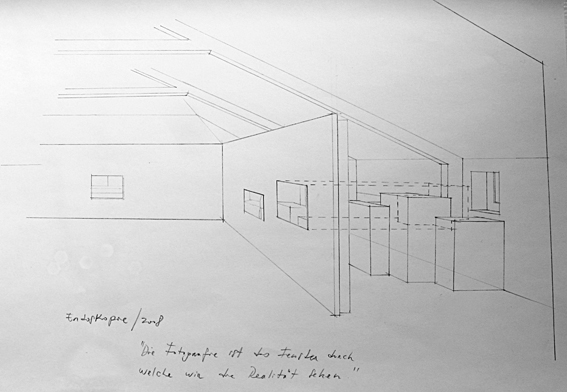 Endoskopie / 2008
"Die Fotografie ist das Fenster durch
welche wir die Realität sehen"